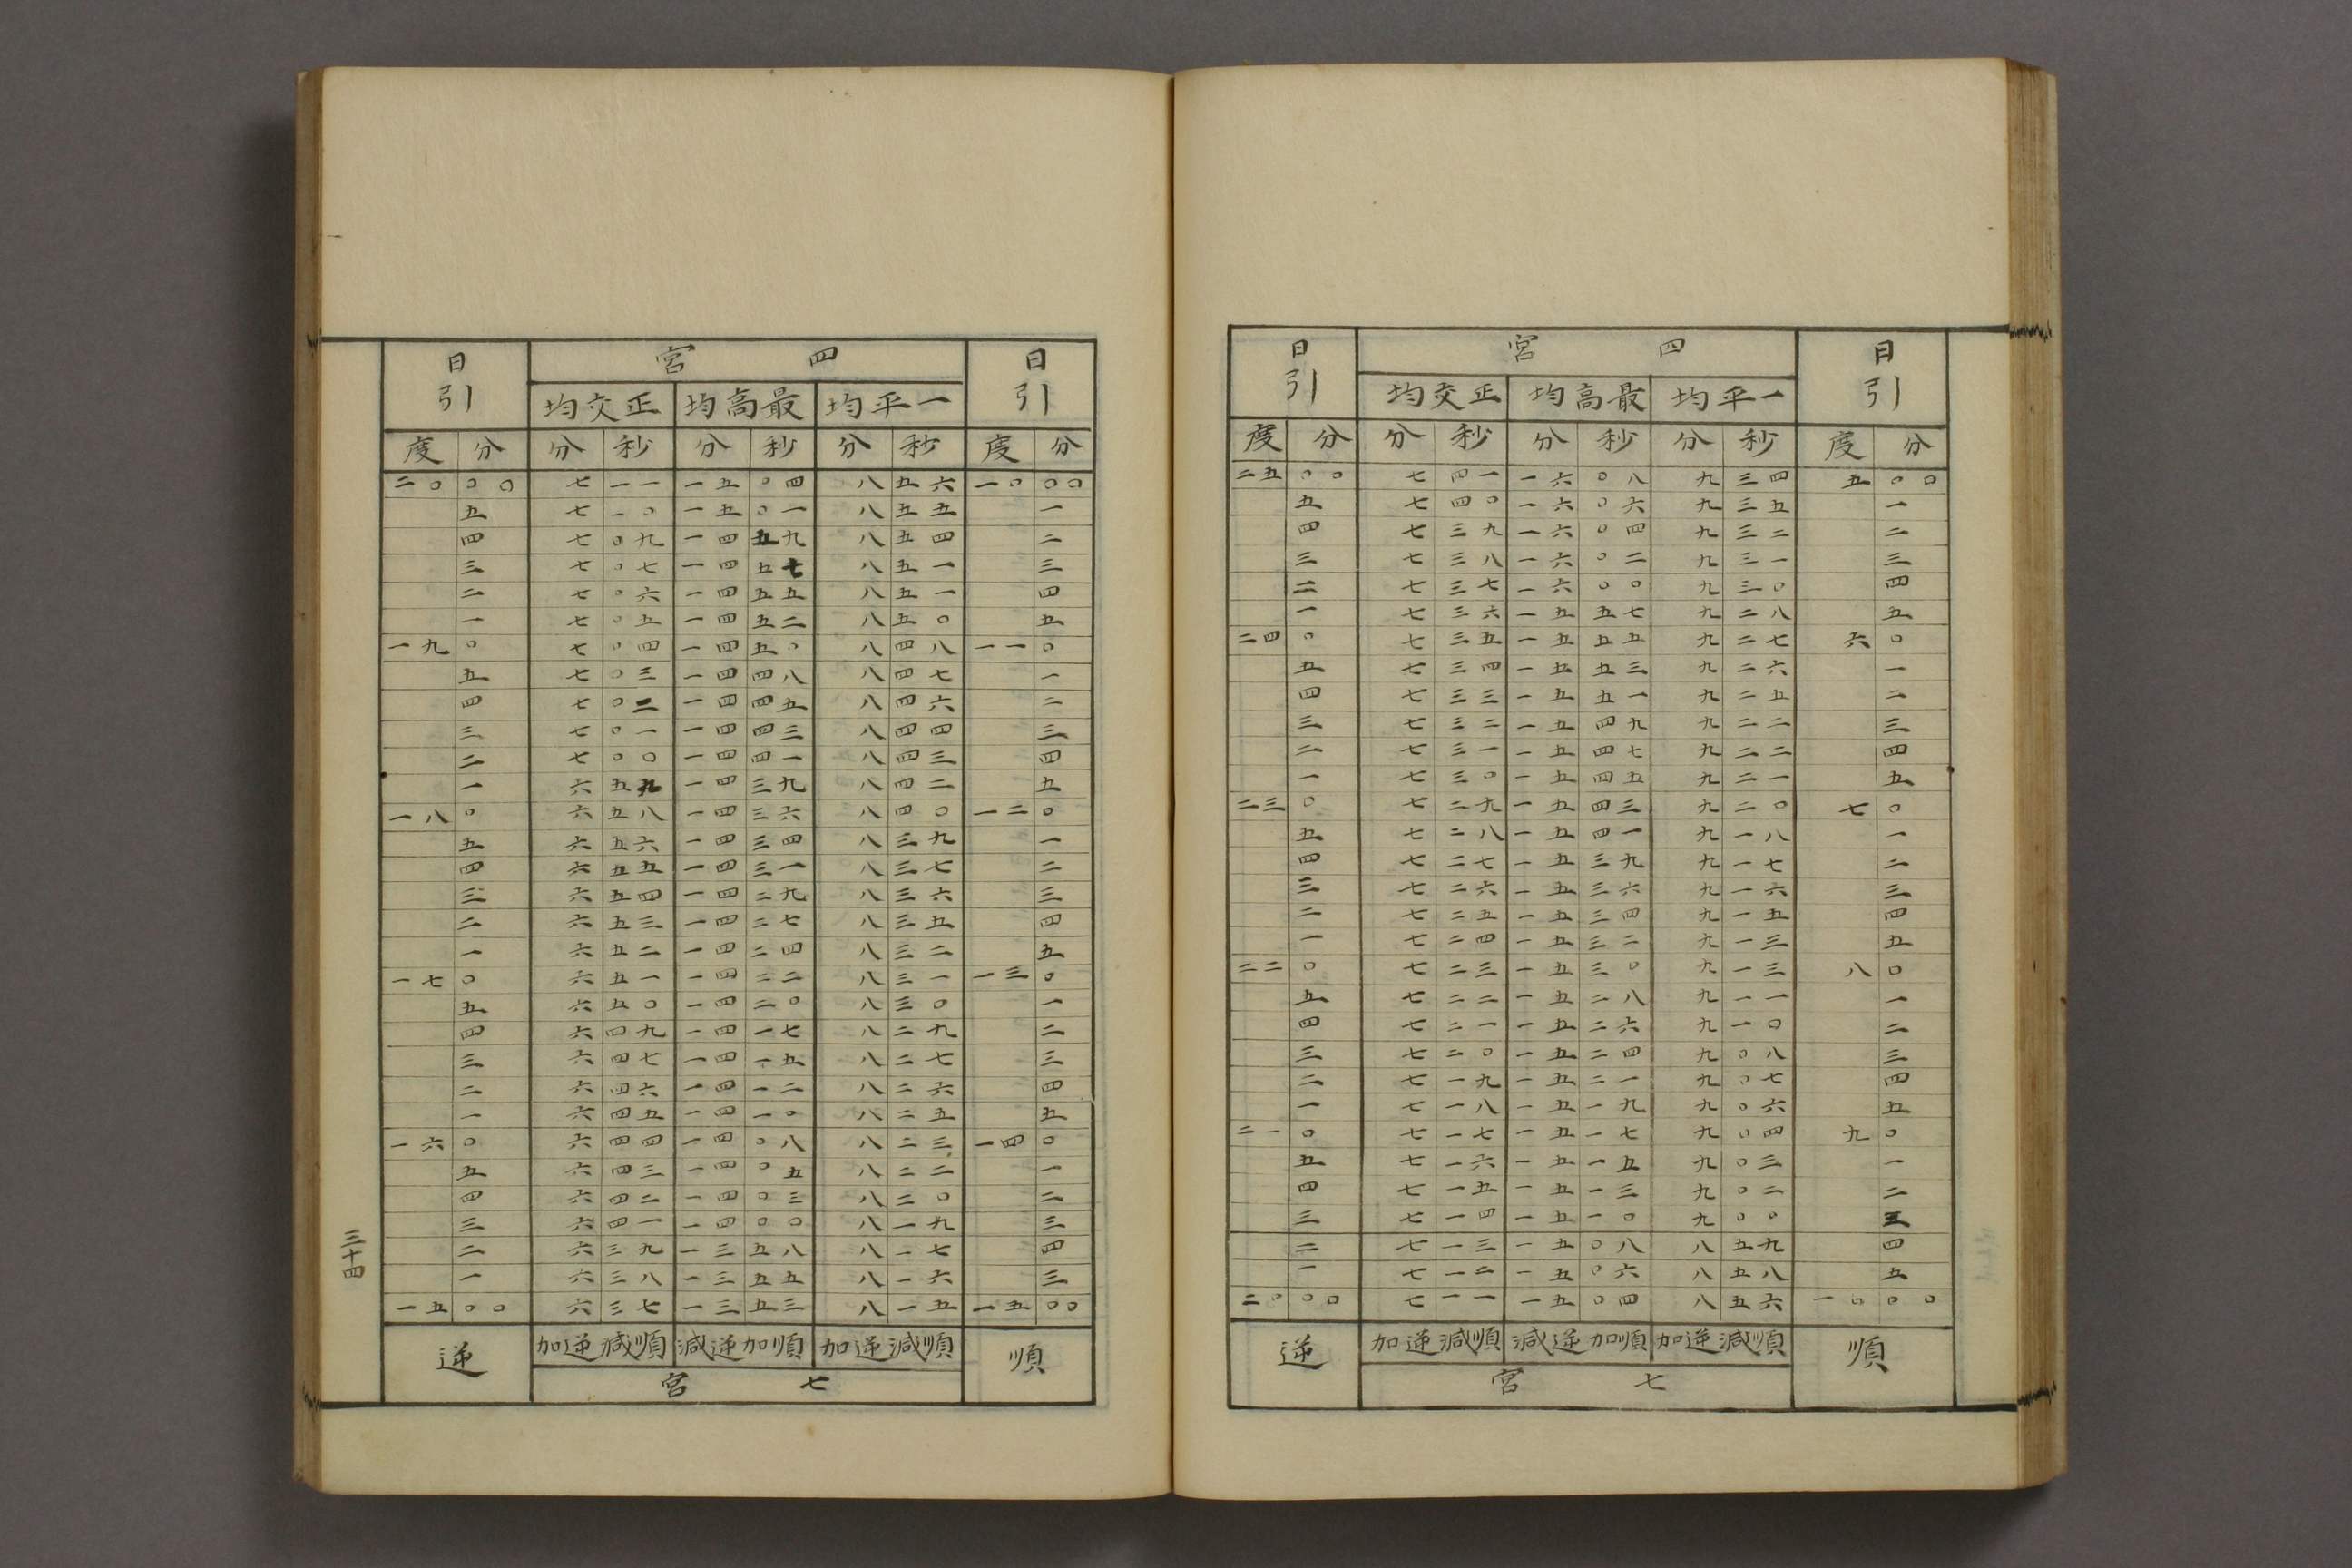 日引 四宮 日引
正交均 最高均 一平均
度 分 分 秒 分 秒 分 秒 度 分
二五 〇〇 七 四一 一六 〇八 九 三四 五 〇〇
五 七 四〇 一六 〇六 九 三五 一
四 七 三九 一六 〇四 九 三二 二
三 七 三八 一六 〇二 九 三一 三
二 七 三七 一六 〇〇 九 三〇 四
一 七 三六 一五 五七 九 二八 五
二四 〇 七 三五 一五 五五 九 二七 六 〇
五 七 三四 一五 五三 九 二六 一
四 七 三三 一五 五一 九 二五 二
三 七 三二 一五 四九 九 二二 三
二 七 三一 一五 四七 九 二二 四
一 七 三〇 一五 四五 九 二一 五
二三 〇 七 二九 一五 四三 九 二〇 七 〇
五 七 二八 一五 四一 九 一八 一
四 七 二七 一五 三九 九 一七 二
三 七 二六 一五 三六 九 一六 三
二 七 二五 一五 三四 九 一五 四
一 七 二四 一五 三二 九 一三 五
二二 〇 七 二三 一五 三〇 九 一三 八 〇
五 七 二二 一五 二八 九 一一 一
四 七 二一 一五 二六 九 一〇 二
三 七 二〇 一五 二四 九 〇八 三
二 七 一九 一五 二一 九 〇七 四
一 七 一八 一五 一九 九 〇六 五
二一 〇 七 一七 一五 一七 九 〇四 九 〇
五 七 一六 一五 一五 九 〇三 一
四 七 一五 一五 一三 九 〇二 二
三 七 一四 一五 一〇 九 〇〇 三
二 七 一三 一五 〇八 八 五九 四
一 七 一二 一五 〇六 八 五八 五
二〇 〇〇 七 一一 一五 〇四 八 五六 一〇 〇〇
逆 順減逆加 順加逆減 順減逆加 順
七宮
日引 四宮 日引
正交均 最高均 一平均
度 分 分 秒 分 秒 分 秒 度 分
二〇 〇〇 七 一一 一五 〇四 八 五六 一〇 〇〇
五 七 一〇 一五 〇一 八 五五 一
四 七 〇九 一四 五九 八 五四 二
三 七 〇七 一四 五七 八 五一 三
二 七 〇六 一四 五五 八 五一 四
一 七 〇五 一四 五二 八 五〇 五
一九 〇 七 〇四 一四 五〇 八 四八 一一 〇
五 七 〇三 一四 四八 八 四七 一
四 七 〇二 一四 四五 八 四六 二
三 七 〇一 一四 四三 八 四四 三
二 七 〇〇 一四 四一 八 四三 四
一 六 五九 一四 三九 八 四二 五
一八 〇 六 五八 一四 三六 八 四〇 一二 〇
五 六 五六 一四 三四 八 三九 一
四 六 五五 一四 三一 八 三七 二
三 六 五四 一四 二九 八 三六 三
二 六 五三 一四 二七 八 三五 四
一 六 五二 一四 二四 八 三二 五
一七 〇 六 五一 一四 二二 八 三一 一三 〇
五 六 五〇 一四 二〇 八 三〇 一
四 六 四九 一四 一七 八 二九 二
三 六 四七 一四 一五 八 二七 三
二 六 四六 一四 一二 八 二六 四
一 六 四五 一四 一〇 八 二五 五
一六 〇 六 四四 一四 〇八 八 二三 一四 〇
五 六 四三 一四 〇五 八 二二 一
四 六 四二 一四 〇三 八 二〇 二
三 六 四一 一四 〇〇 八 一九 三
二 六 三九 一三 五八 八 一七 四
一 六 三八 一三 五五 八 一六 三
一五 〇〇 六 三七 一三 五三 八 一五 一五 〇〇
逆 順減逆加 順加逆減 順減逆加 順
七宮
三十四